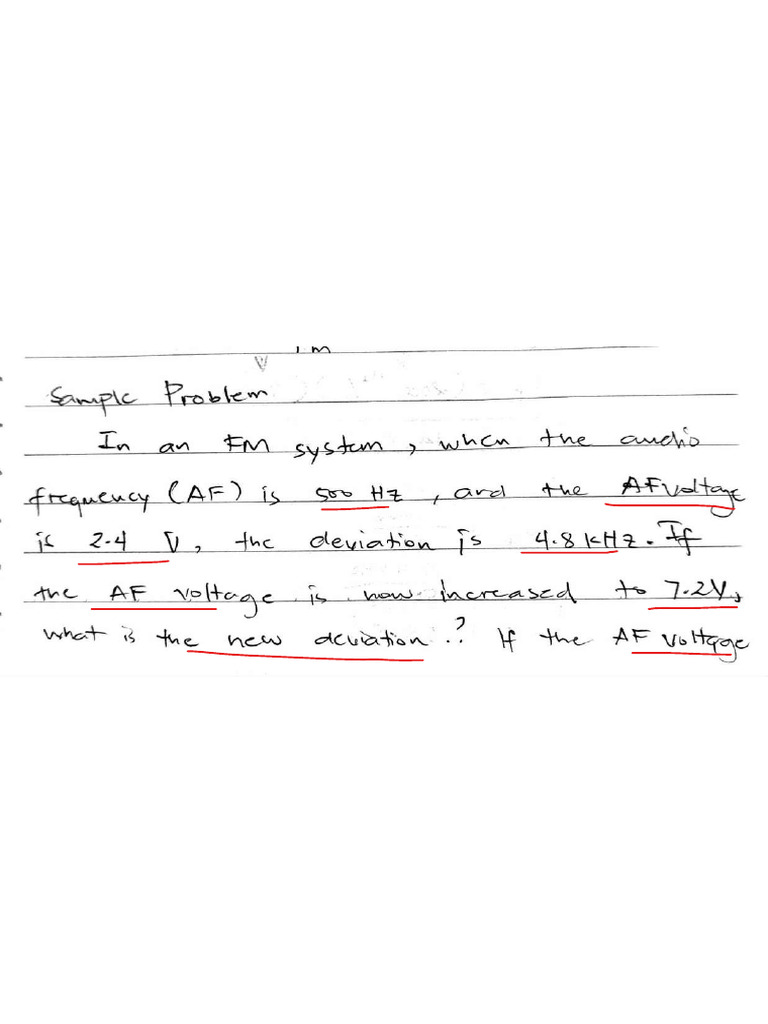 Sample Problem
In an FM system, when the audio
frequency (AF) is 500 Hz, and the AF voltage
is 2.4 V, the deviation is 4.8 kHz. If
the AF voltage is now increased to 7.2V,
what is the new deviation? If the AF voltage